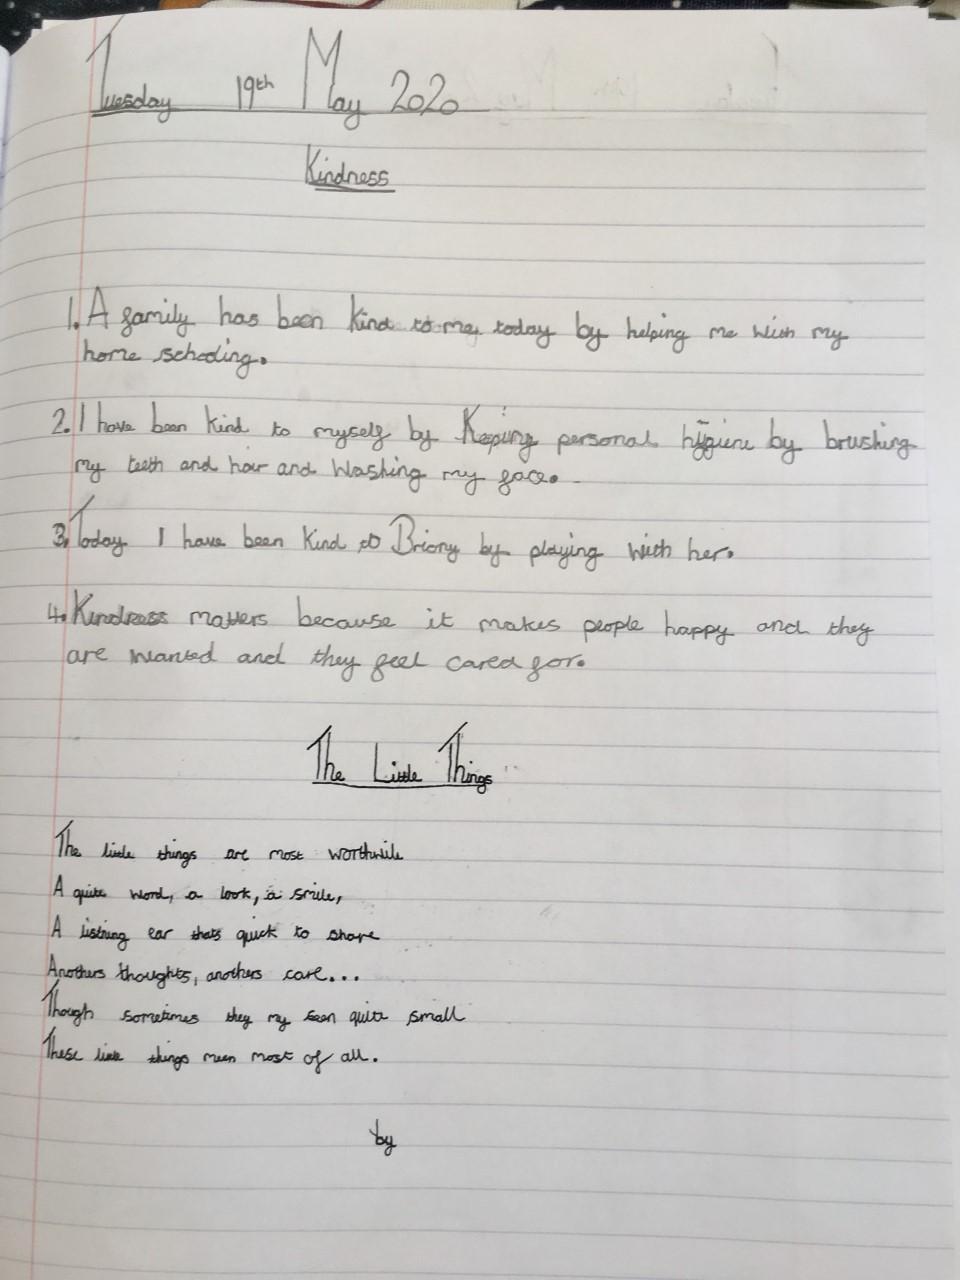 Tuesday 19th May 2020
Kindness
1. A family has been kind to me, today by helping me with my
home schooling.
2. I have been kind to myself by Keeping personal hygiene by brushing
my teeth and hair and washing my face.
3. Today I have been kind to Briony by playing with her.
4. Kindness matters because it makes people happy and they
are wanted and they feel cared for.
The Little Things
The little things are most worthwile
A quite word, a look, a smile,
A listning ear thats quick to share
Anothers thoughts, anothers care...
Though sometimes they my seen quite small
These little things meen most of all.
by